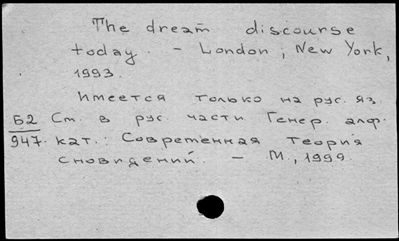 The dream discourse
today. - London; New York,
1993.
Имеется только на рус. яз.
Б2 См. в рус. части Генер. алф.
947. кат.: Современная теория
сновидений. - М., 1999.